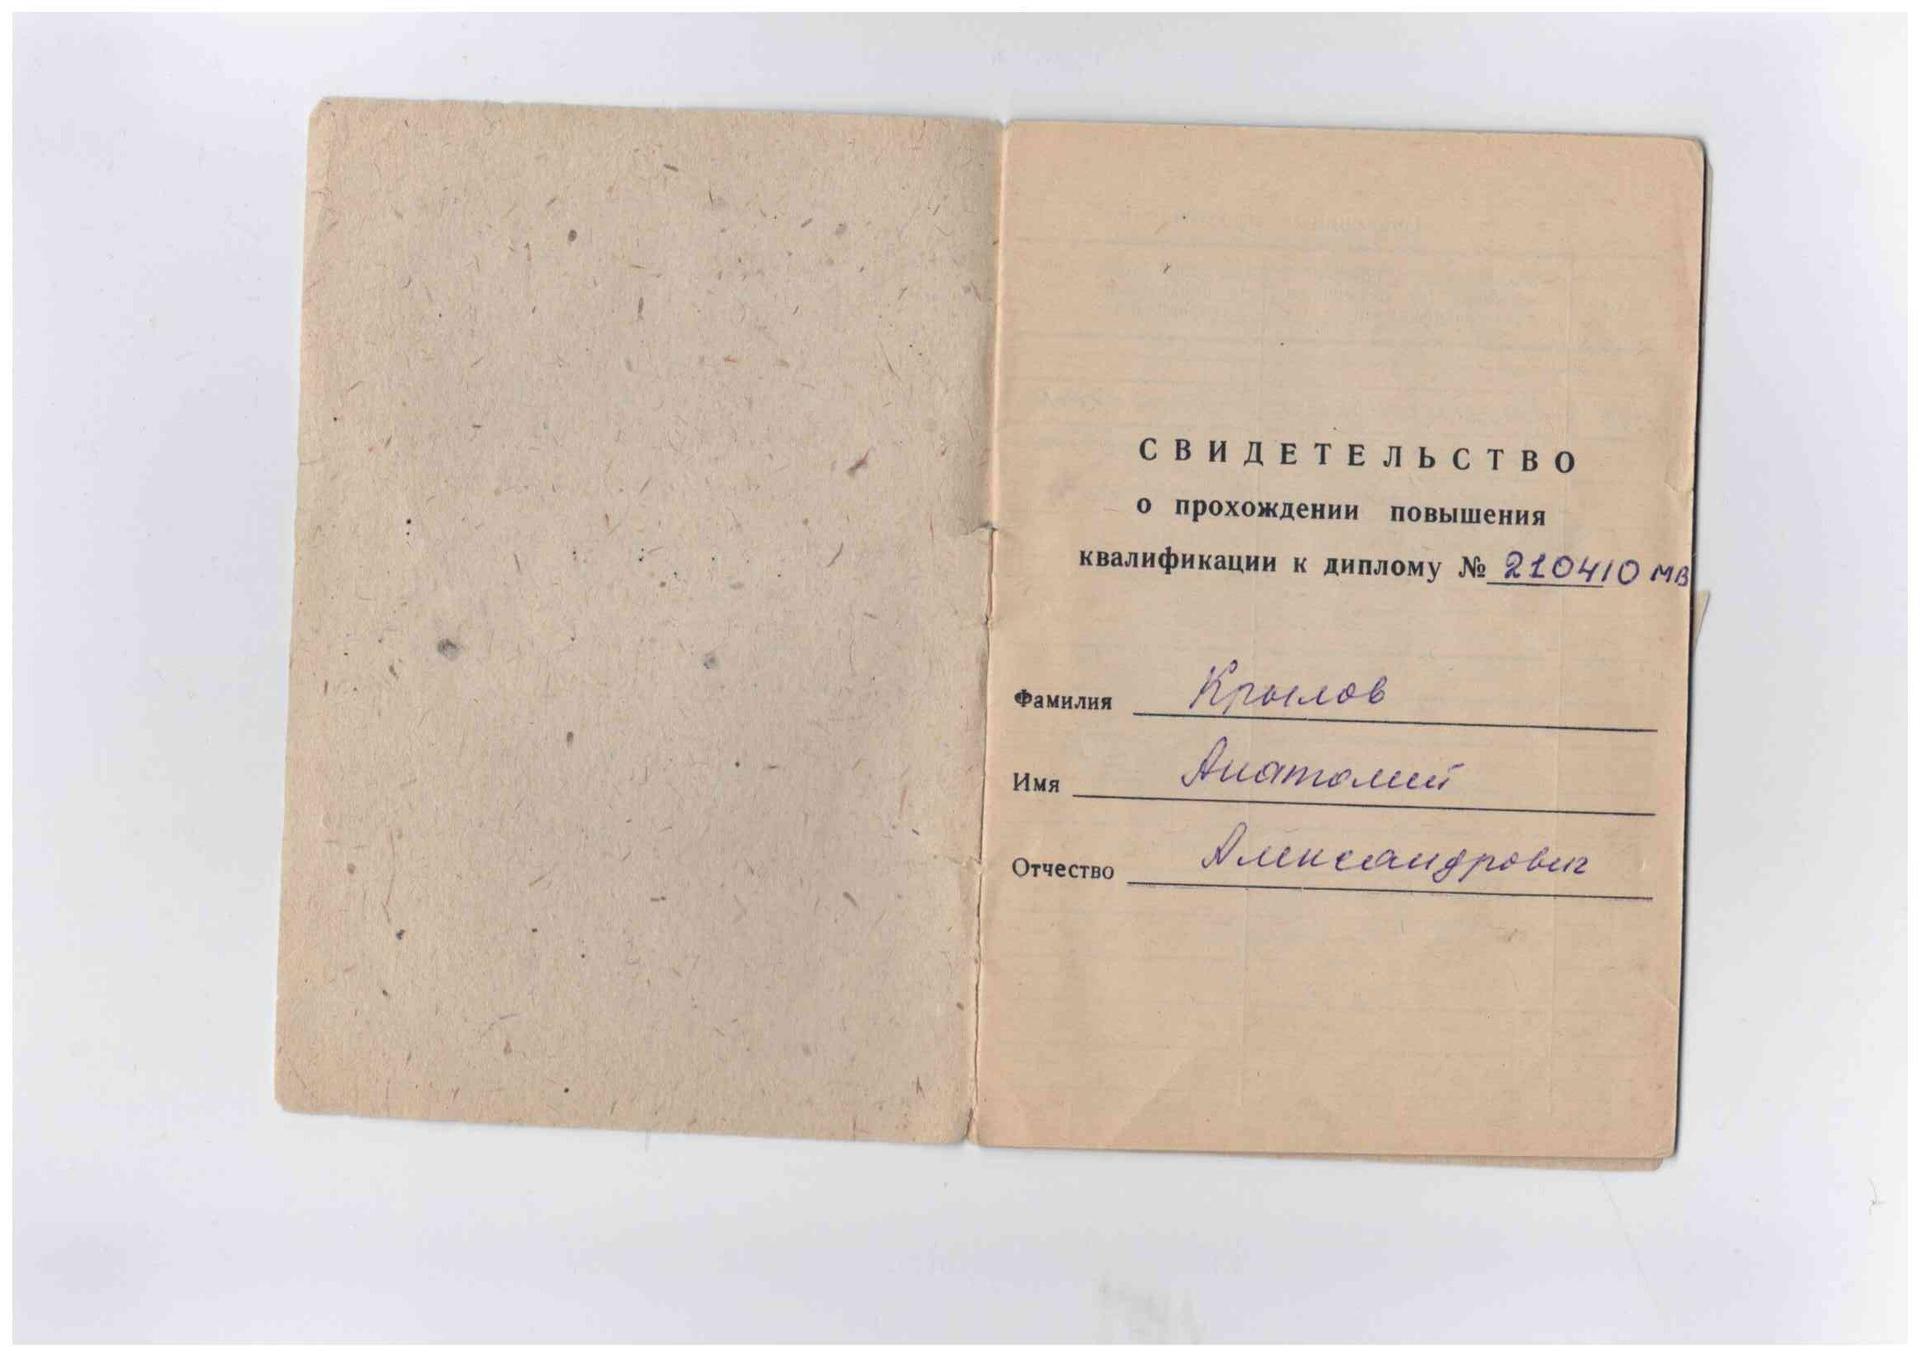 СВИДЕТЕЛЬСТВО
о прохождении повышения
квалификации к диплому № 210410 МВ
Фамилия Крылов
Имя Анатолий
Отчество Александрович